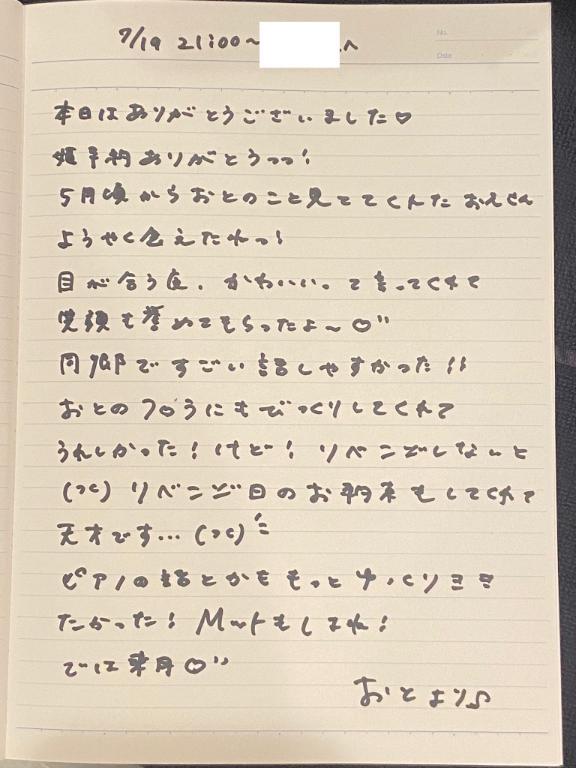 No.
Date
7/19 21:00〜 へ
本日はありがとうございました♡
姫予約ありがとうっっ!
5月頃からおとのこと見ててくれたおえくん
ようやく会えたねっ!
目が合う度、かわいい。って言ってくれて
笑顔も誉めてもらったよ〜♡"
同郷ですごい話しやすかった!!
おとのフロうにもびっくりしてくれて
うれしかった!けど!リベンジしないと
(つ<) リベンジ日のお約束もしてくれて
天才です…(つ<)
ピアノの話とかももっとゆっくりヨヨ
たかった!Mットもしようね!
では来月♡"
おとより♪